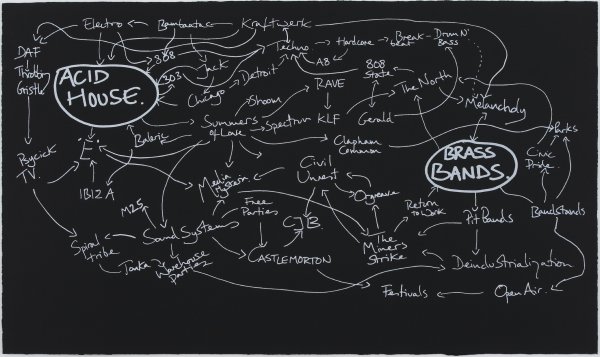 Electro
Bambaataa
Kraftwerk
DAF
808
Techno
Hardcore
Break
beat
Drum N'
Bass
Throbbing
Gristle
ACID
HOUSE.
303
Jack
Detroit
A8
808
State
Chicago
Shoom
RAVE
The North
Melancholy
Summers
of Love
Spectrum
KLF
Gerald
Balaric
E.
Clapham
Common
Parks
Psychick
TV
Media
Hysteria
Civil
Unrest
BRASS
BANDS.
Civic
Pride
IBIZA
Orgreave
M25
Free
Parties
CJB.
Return
to Work
Pit Bands
Bandstands
Spiral
tribe
Sound Systems
The
Miners
Strike
Tonka
Warehouse
Parties
CASTLEMORTON
Deindustrialization
Festivals
Open Air.